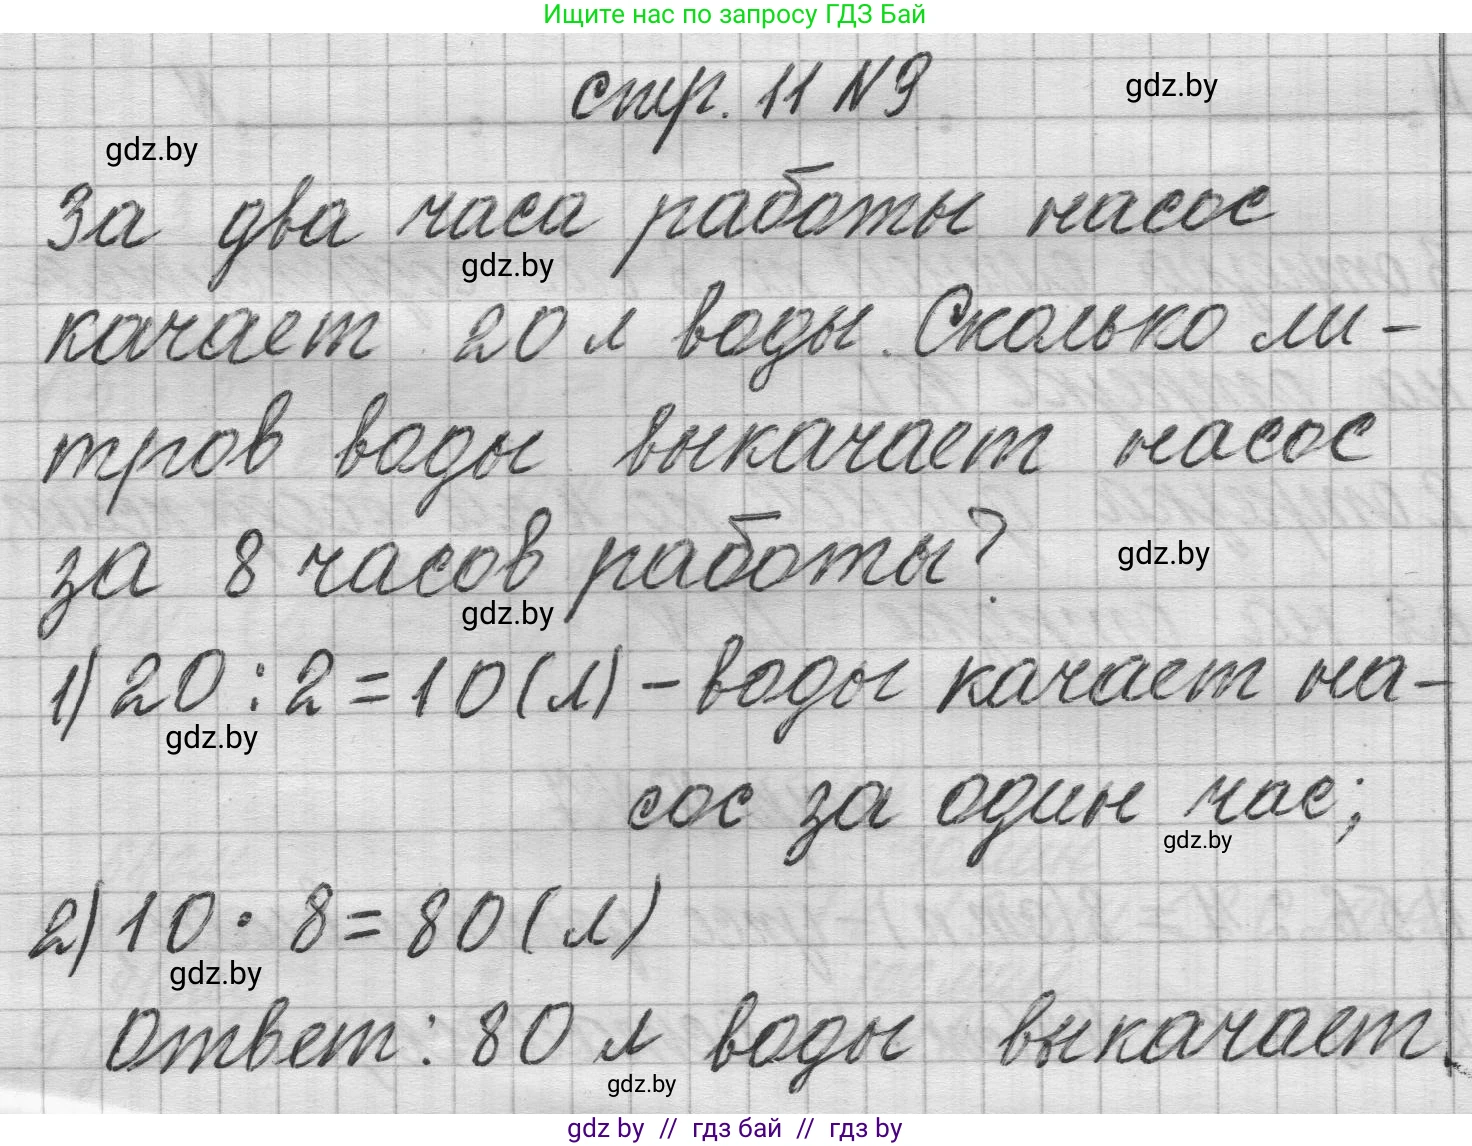 Ищите нас по запросу ГДЗ Бай
стр. 11 №9
gdz.by
gdz.by
За два часа работы насос
gdz.by
качает 20 л воды. Сколько ли-
тров воды выкачает насос
за 8 часов работы?
gdz.by
gdz.by
1) 20 : 2 = 10 (л) - воды качает на-
gdz.by
сос за один час;
gdz.by
2) 10 · 8 = 80 (л)
gdz.by
Ответ: 80 л воды выкачает.
gdz.by
gdz by // гдз бай // гдз by